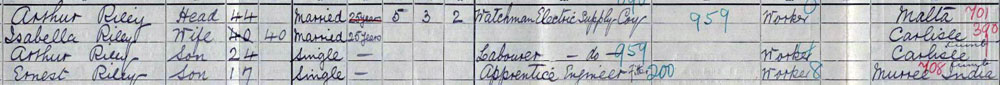 Arthur Riley Head 44 Married 25 years 5 3 2 Watchman Electric Supply Coy 959 Worker Malta 701
Isabella Riley Wife 40 40 Married 25 years Carlisle 390
Arthur Riley Son 24 Single — Labourer — do — 959 Worker Carlisle Cumb
Ernest Riley Son 17 Single — Apprentice Engineer 200 Worker Murree India 708